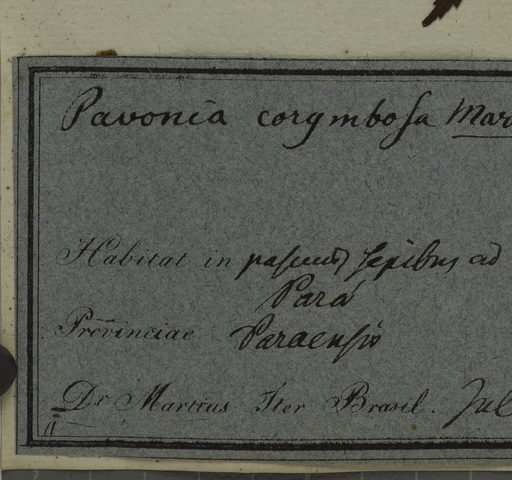 Pavonia corymbosa Mar
Habitat in pascuis sepibus ad
Pará
Provinciae Paraensis
Dr Martius Iter Brasil. Jul
a